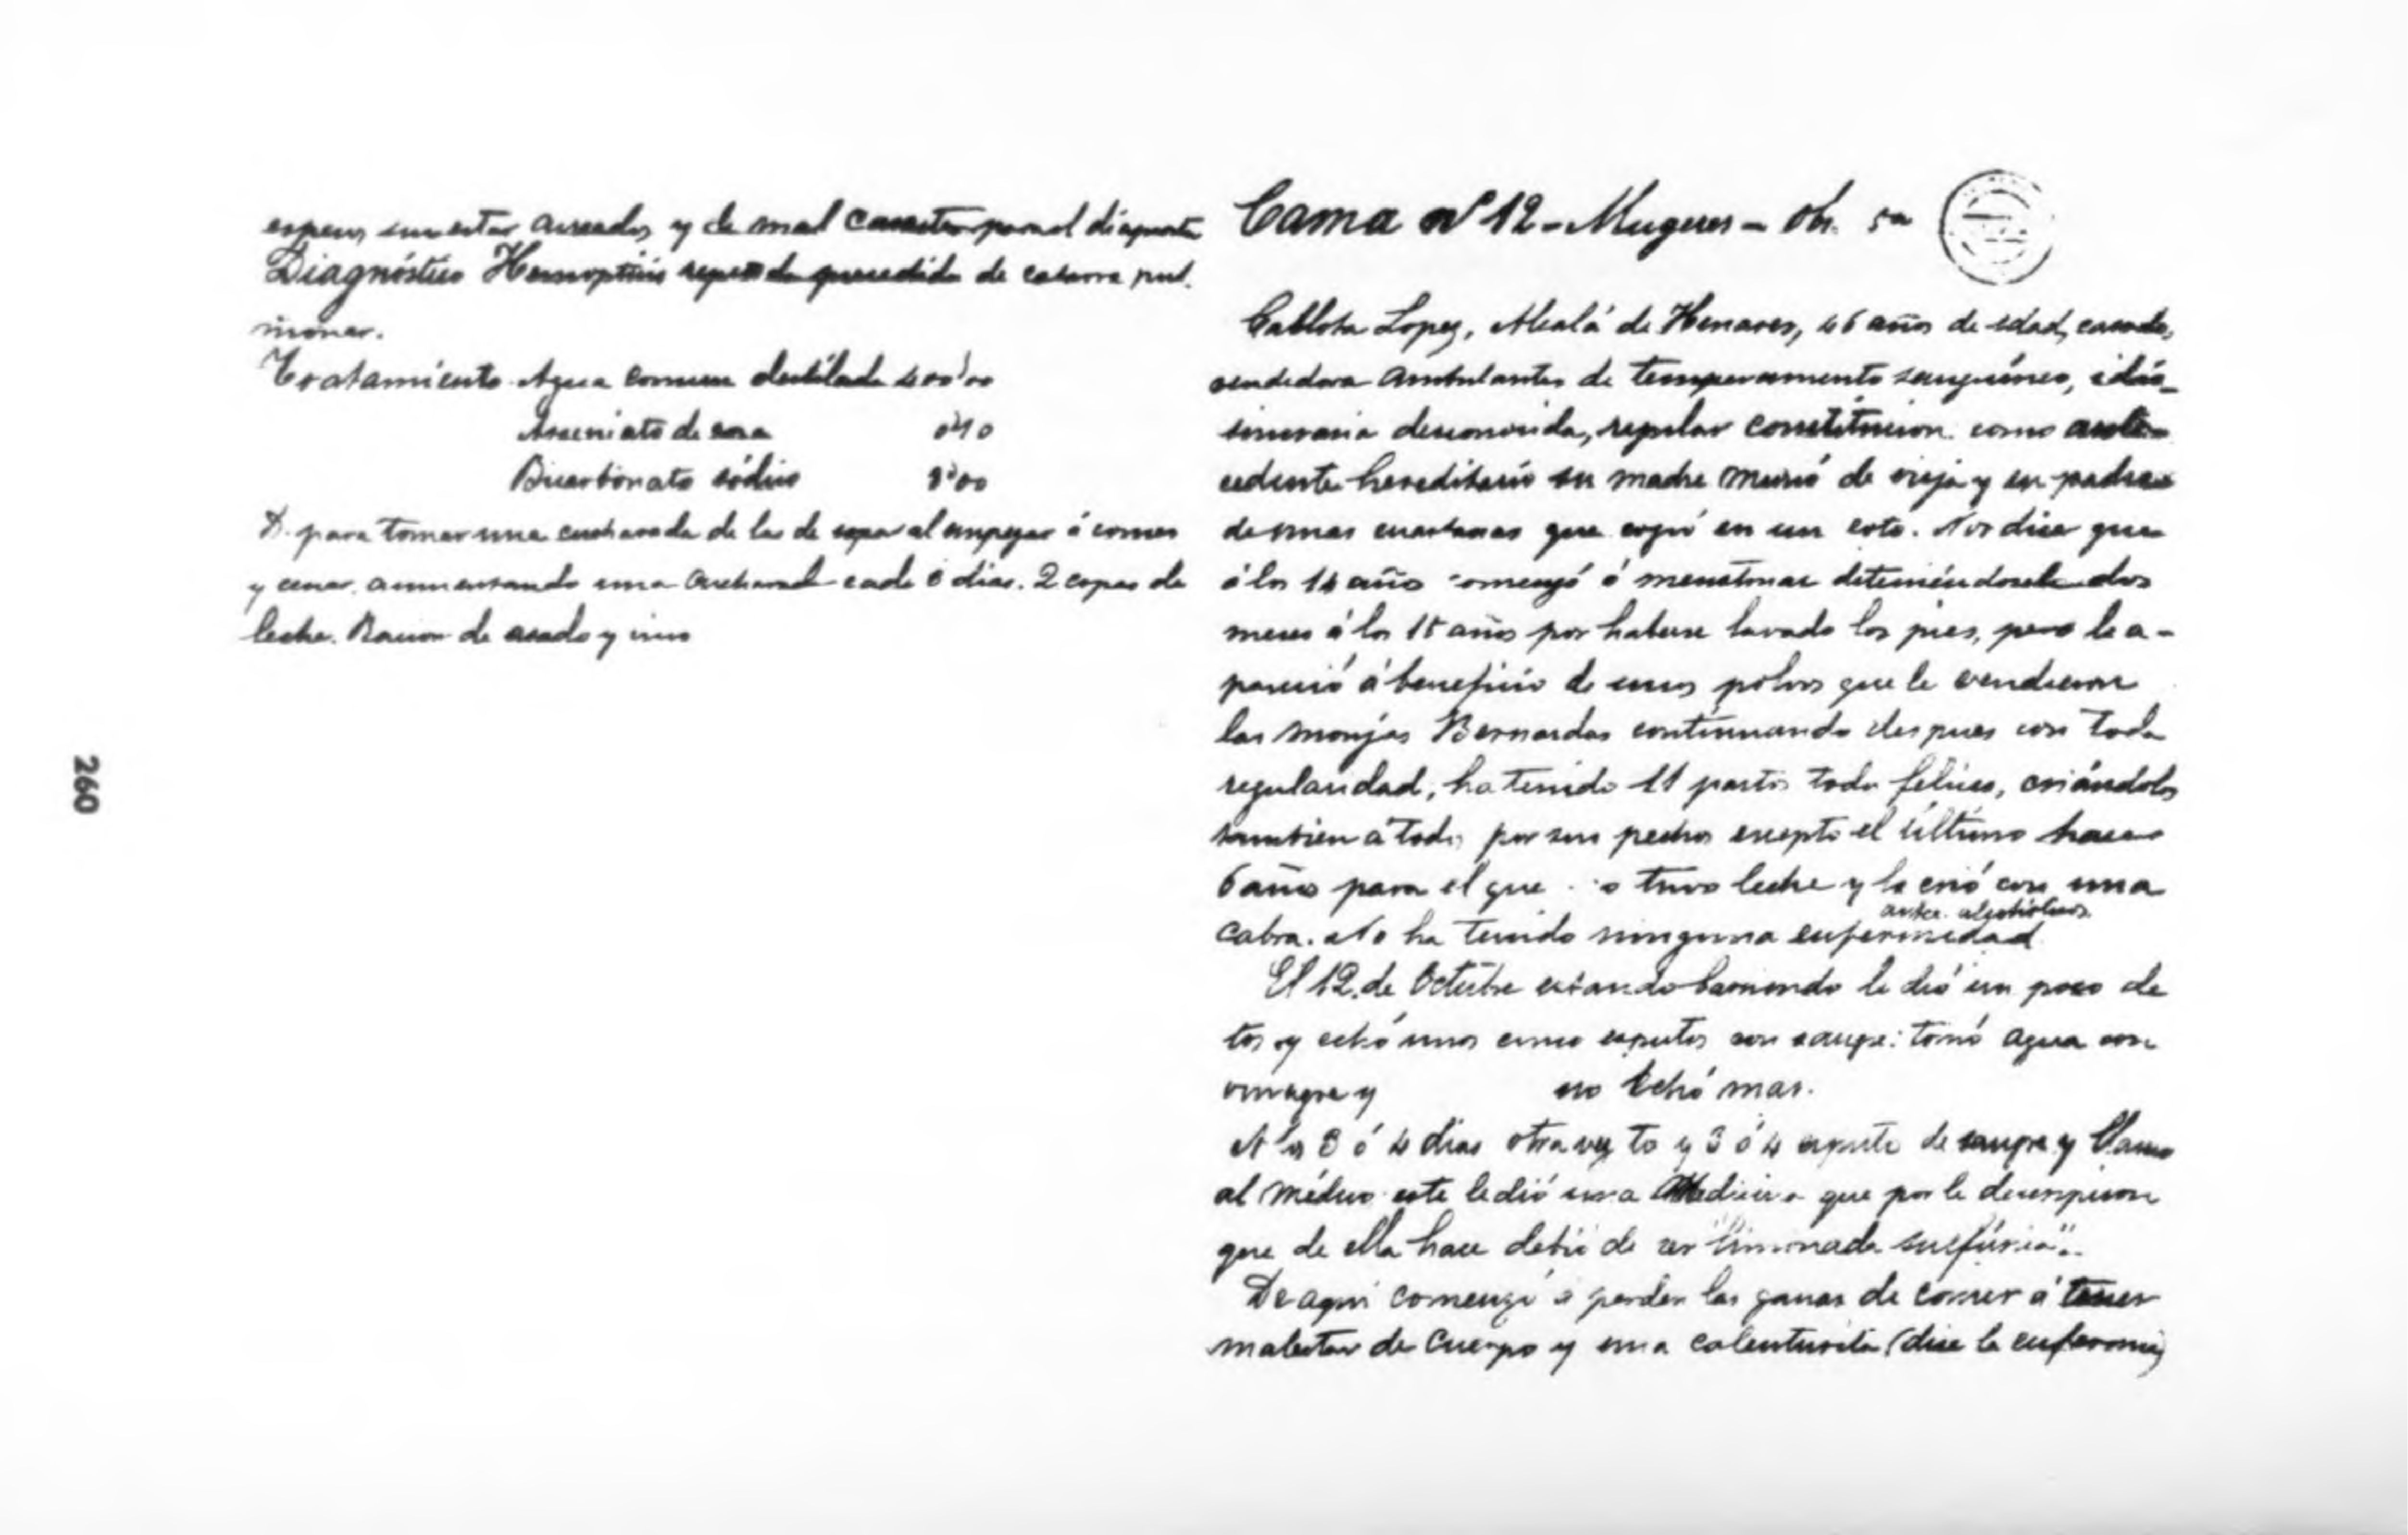 espesos sin estar aireados y de mal caracter para el
Diagnóstico Hemoptisis precedida de catarro pul-
monar.
Tratamiento. Agua comun destilada 400'00
Arseniato de sosa 0'10
Bicarbonato sódico 8'00
D. para tomar una cucharada de las de sopa al empezar á comer
y cenar, aumentando una cucharada cada 8 dias. 2 copas de
leche. Racion de asado y vino
260
Cama nº 12 - Mugeres - Ob. 5ª
Lopez, Alcalá de Henares, 46 años de edad, casada,
vendedora ambulante, de temperamento sanguíneo, idio-
sincrasia desconocida, regular constitucion como ante-
cedente hereditario su madre murió de vieja y su padre
de unas cuartanas que cogió en un soto. Nos dice que
á los 14 año comenzó á menstruar deteniéndosele dos
meses á los 15 años por haberse lavado los pies, pero le a-
pareció á beneficio de unos polvos que le vendieron
las monjas Bernardas continuando despues con toda
regularidad, ha tenido 11 partos todos felices, criándolos
tambien á todos por sus pechos excepto el último hace
6 años para el que no tuvo leche y lo crió con una
cabra. No ha tenido ninguna enfermidad
antec. alcohólicos
El 12 de Octubre estando barriendo le dió un poco de
tos y echó unos cinco esputos con sangre: tomó agua con
vinagre y no echó mas.
A los 3 ó 4 dias otra vez tos y 3 ó 4 esputos de sangre y llamó
al médico este le dió una medicina que por la descripcion
que de ella hace debió de ser "limonada sulfúrica".
De aqui comenzó á perder las ganas de comer á tener
malestar de cuerpo y una calenturita (dice la enferma)